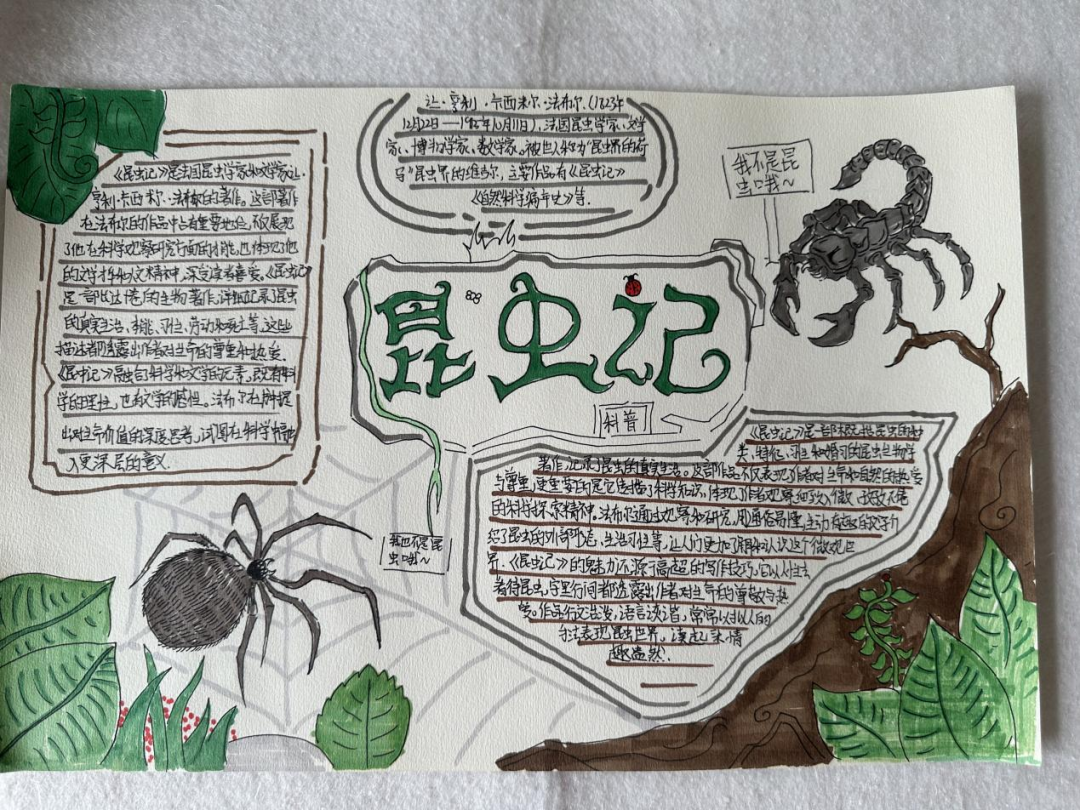 让·亨利·卡西米尔·法布尔(1823年
12月22日——1915年10月11日)、法国昆虫学家、文学
家、博物学家、数学家。被世人称为"昆虫界的荷
马"昆虫界的维吉尔,主要作品有《昆虫记》
《自然科学编年史》等.
我不是昆
虫哦~
《昆虫记》是法国昆虫学家和文学家让·
亨利·卡西米尔·法布尔的著作。这部著作
在法布尔的作品中占有重要地位,不仅展现
了他在科学观察研究方面的才能,也体现了他
的文学才华和人文精神,深受读者喜爱。《昆虫记》
是一部的生物著作,详细记录了昆虫
的真实生活、本能、习性、劳动和死亡等,这些
描述都透露出作者对生命的尊重和热爱.
《昆虫记》融合科学和文学的元素,既有科
学的理性,也有文学的感性。法布尔在
出对生命价值的深度思考,试图在科学中融
入更深层的意义.
昆虫记
科普
《昆虫记》是一部概括昆虫的种
类、特征、习性和婚习的昆虫生物学
著作,记录了昆虫的真实生活。这部作品不仅表现了作者对生命和自然的热爱
与尊重,更重要的是它传播了科学知识,体现了作者观察细致入微、孜孜不倦
的科学探索精神.法布尔通过观察和研究,用通俗易懂,生动有趣的文字介
绍了昆虫的外部形态、生活习性等,让人们更加了解和认识这个微观世
界.《昆虫记》的魅力不源于高超的写作技巧,它以人性去
看待昆虫,字里行间都透露出作者对生命的尊敬与热
爱。作品行文活泼,语言诙谐,常常以拟人的
手法表现昆虫世界,读起来情
趣盎然.
我也不是昆
虫哦~